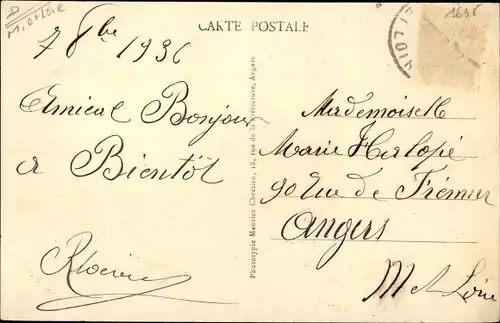 D
M. et Loire
CARTE POSTALE
1635
7 8bre 1936
Amical Bonjour
a Bientôt
Photographie Maurice Chrétien, 18, rue de la Préfecture, Angers
Mademoiselle
Marie
90 Rue de Frémur
Angers
M et Loire